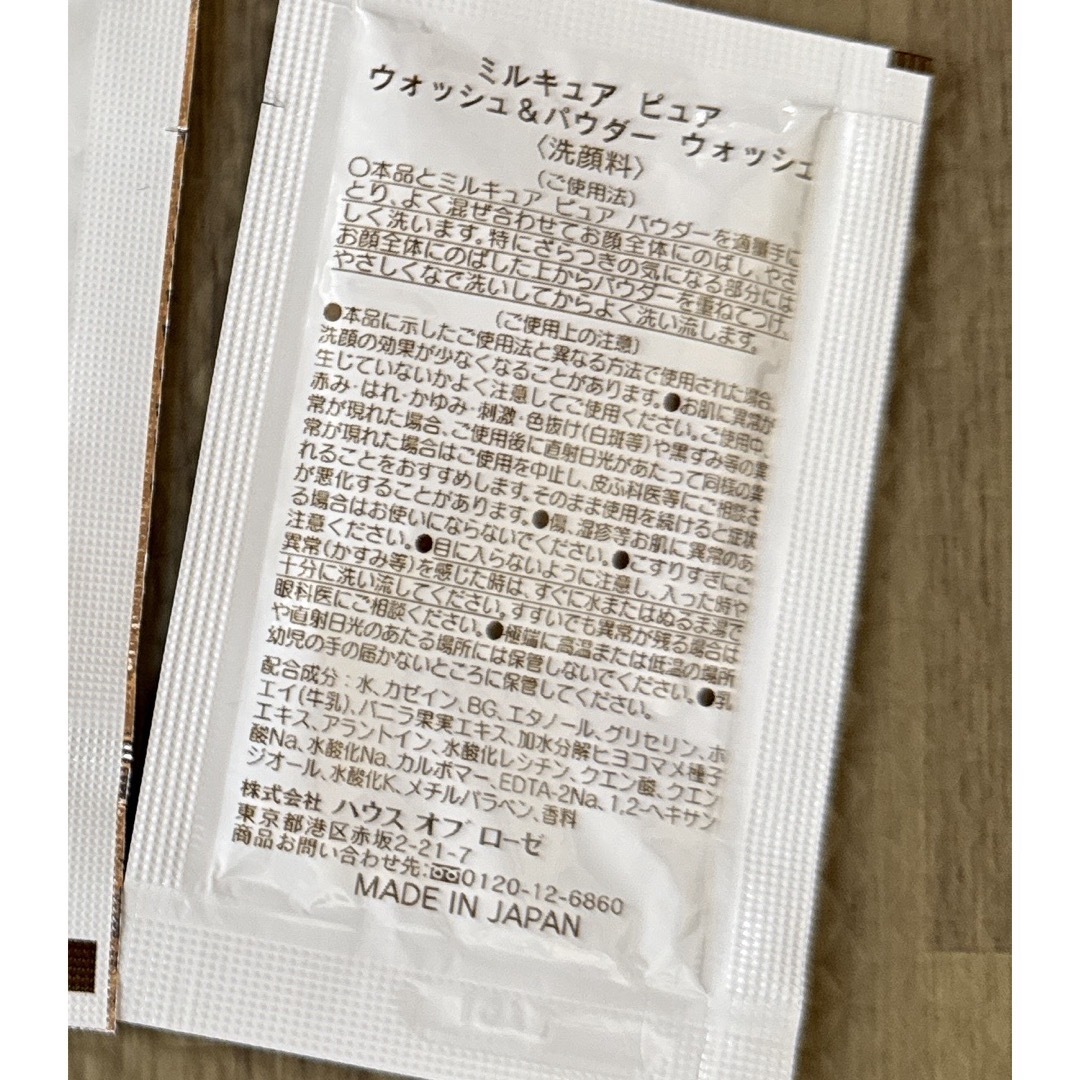 ミルキュア ピュア
ウォッシュ&パウダー ウォッシュ
〈洗顔料〉
(ご使用法)
○本品とミルキュア ピュア パウダーを適量手に
とり、よく混ぜ合わせてお顔全体にのばし、やさ
しく洗います。特にざらつきの気になる部分には
お顔全体にのばした上からパウダーを重ねてつけ、
やさしくなで洗いしてからよく洗い流します。
(ご使用上の注意)
●本品に示したご使用法と異なる方法で使用された場合、
洗顔の効果が少なくなることがあります。●お肌に異常が
生じていないかよく注意してご使用ください。ご使用中、
赤み・はれ・かゆみ・刺激・色抜け(白斑等)や黒ずみ等の異
常が現れた場合、ご使用後に直射日光があたって同様の異
常が現れた場合はご使用を中止し、皮ふ科医等にご相談さ
れることをおすすめします。そのまま使用を続けると症状
が悪化することがあります。●傷、湿疹等お肌に異常のあ
る場合はお使いにならないでください。●こすりすぎにご
注意ください。●目に入らないように注意し、入った時や
異常(かすみ等)を感じた時は、すぐに水またはぬるま湯で
十分に洗い流してください。すすいでも異常が残る場合は
眼科医にご相談ください。●極端に高温または低温の場所
や直射日光のあたる場所には保管しないでください。●乳
幼児の手の届かないところに保管してください。
配合成分：水、カゼイン、BG、エタノール、グリセリン、ホ
エイ(牛乳)、バニラ果実エキス、加水分解ヒヨコマメ種子
エキス、アラントイン、水酸化レシチン、クエン酸、クエン
酸Na、水酸化Na、カルボマー、EDTA-2Na、1,2-ヘキサン
ジオール、水酸化K、メチルパラベン、香料
株式会社 ハウス オブ ローゼ
東京都港区赤坂2-21-7
商品お問い合わせ先:0120-12-6860
MADE IN JAPAN